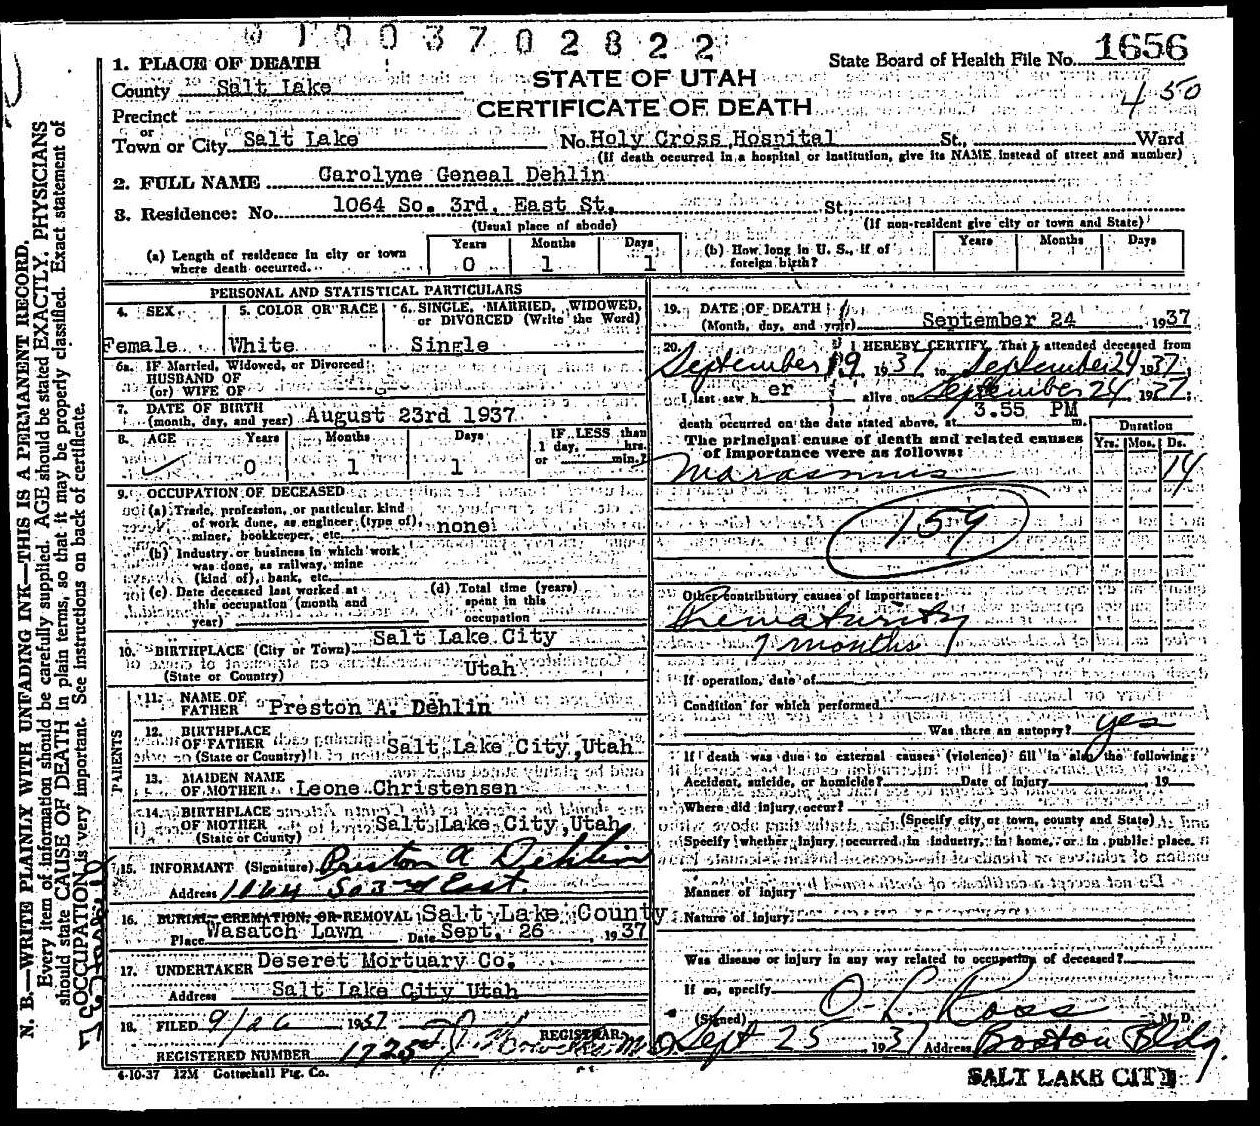 01003702822
State Board of Health File No. 1656
450
STATE OF UTAH
CERTIFICATE OF DEATH
1. PLACE OF DEATH
County Salt Lake
Precinct
or
Town or City Salt Lake No. Holy Cross Hospital St., Ward
(If death occurred in a hospital or institution, give its NAME instead of street and number)
2. FULL NAME Carolyne Geneal Dehlin
3. Residence: No. 1064 So. 3rd. East St. St.,
(Usual place of abode) (If non-resident give city or town and State)
(a) Length of residence in city or town where death occurred. Years 0 Months 1 Days 1
(b) How long in U. S., if of foreign birth? Years Months Days
PERSONAL AND STATISTICAL PARTICULARS
4. SEX Female
5. COLOR OR RACE White
6. SINGLE, MARRIED, WIDOWED, or DIVORCED (Write the Word) Single
6a. IF Married, Widowed, or Divorced
HUSBAND OF
(or) WIFE OF
7. DATE OF BIRTH
(month, day, and year) August 23rd 1937
8. AGE Years 0 Months 1 Days 1 IF LESS than 1 day, hrs. or min.?
9. OCCUPATION OF DECEASED
(a) Trade, profession, or particular kind
of work done, as engineer (type of),
miner, bookkeeper, etc. none
(b) Industry or business in which work
was done, as railway, mine
(kind of), bank, etc.
(c) Date deceased last worked at
this occupation (month and
year)
(d) Total time (years)
spent in this
occupation
10. BIRTHPLACE (City or Town) Salt Lake City
(State or Country) Utah
PARENTS
11. NAME OF
FATHER Preston A. Dehlin
12. BIRTHPLACE
OF FATHER Salt Lake City, Utah
(State or Country)
13. MAIDEN NAME
OF MOTHER Leone Christensen
14. BIRTHPLACE
OF MOTHER Salt Lake City, Utah
(State or County)
15. INFORMANT (Signature) Preston A Dehlin
Address 1064 So 3rd East.
16. BURIAL, CREMATION, OR REMOVAL Salt Lake County
Place Wasatch Lawn Date Sept. 26, 1937
17. UNDERTAKER Deseret Mortuary Co.
Address Salt Lake City Utah
18. FILED 9/26 1937
REGISTRAR
REGISTERED NUMBER 1725
4-10-37 12M Gottschall Ptg. Co.
19. DATE OF DEATH
(Month, day, and year) September 24 1937
20. I HEREBY CERTIFY, That I attended deceased from
September 19 1937 to September 24 1937;
I last saw her alive on September 24 1937;
death occurred on the date stated above, at 3.55 PM m.
The principal cause of death and related causes
of importance were as follows:
Duration
Yrs. Mos. Ds.
Marasmus 14
159
Other contributory causes of importance:
Prematurity
7 months
If operation, date of
Condition for which performed
Was there an autopsy? yes
If death was due to external causes (violence) fill in also the following:
Accident, suicide, or homicide? Date of injury 19
Where did injury occur?
(Specify city or town, county and State)
Specify whether injury occurred in industry, in home, or in public place.
Manner of injury
Nature of injury
Was disease or injury in any way related to occupation of deceased?
If so, specify
(Signed) O L Ross M. D.
Sept 25 1937 Address Boston Bldg.
SALT LAKE CITY
N. B.—WRITE PLAINLY WITH UNFADING INK—THIS IS A PERMANENT RECORD.
Every item of information should be carefully supplied. AGE should be stated EXACTLY. PHYSICIANS
should state CAUSE OF DEATH in plain terms, so that it may be properly classified. Exact statement of
OCCUPATION is very important. See instructions on back of certificate.